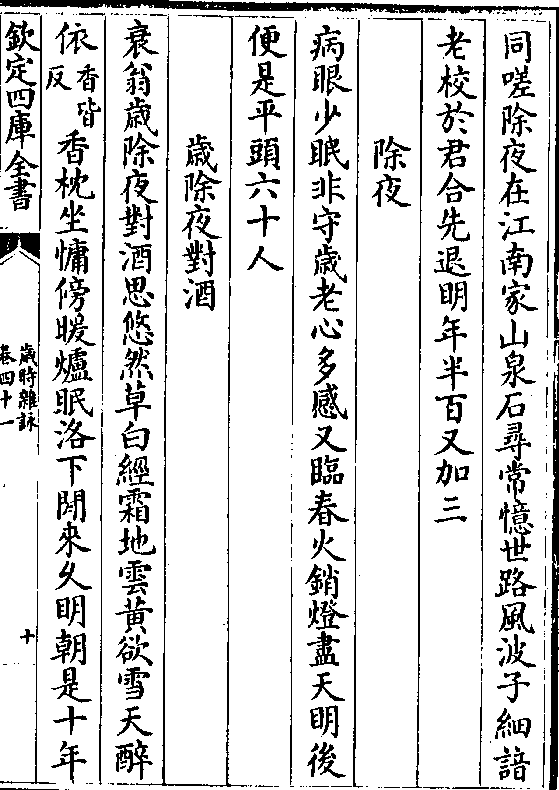 同嗟除夜在江南家山泉石尋常憶世路風波子細諳
老校於君合先退明年半百又加三
除夜
病眼少眠非守歳老心多感又臨春火銷燈盡天明後
便是平頭六十人
歳除夜對酒
衰翁歳除夜對酒思悠然草白經霜地雲黄欲雪天醉
依香皆反香枕坐慵傍暖爐眠洛下閒來久明朝是十年
欽定四庫全書
歳時雜詠
卷四十一
十